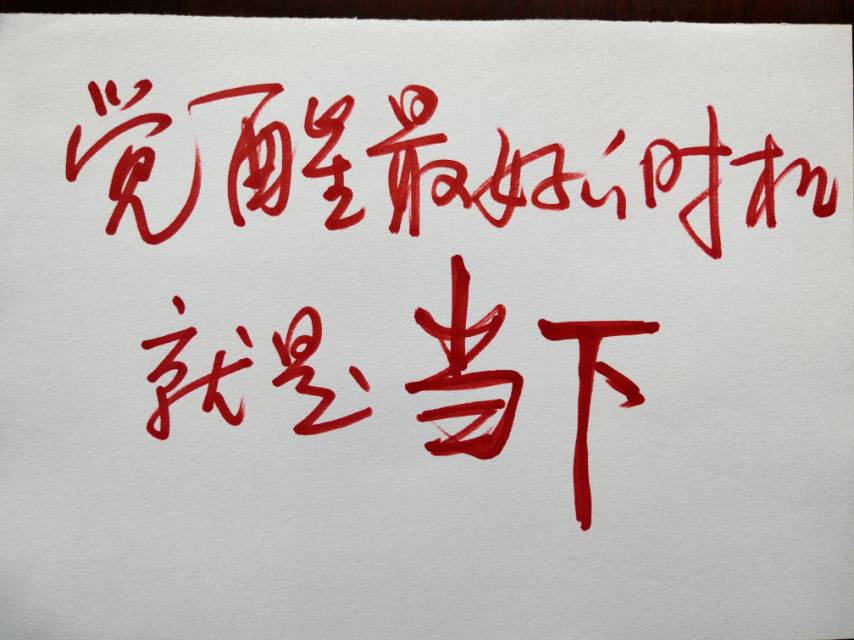 觉醒最好的时机
就是当下